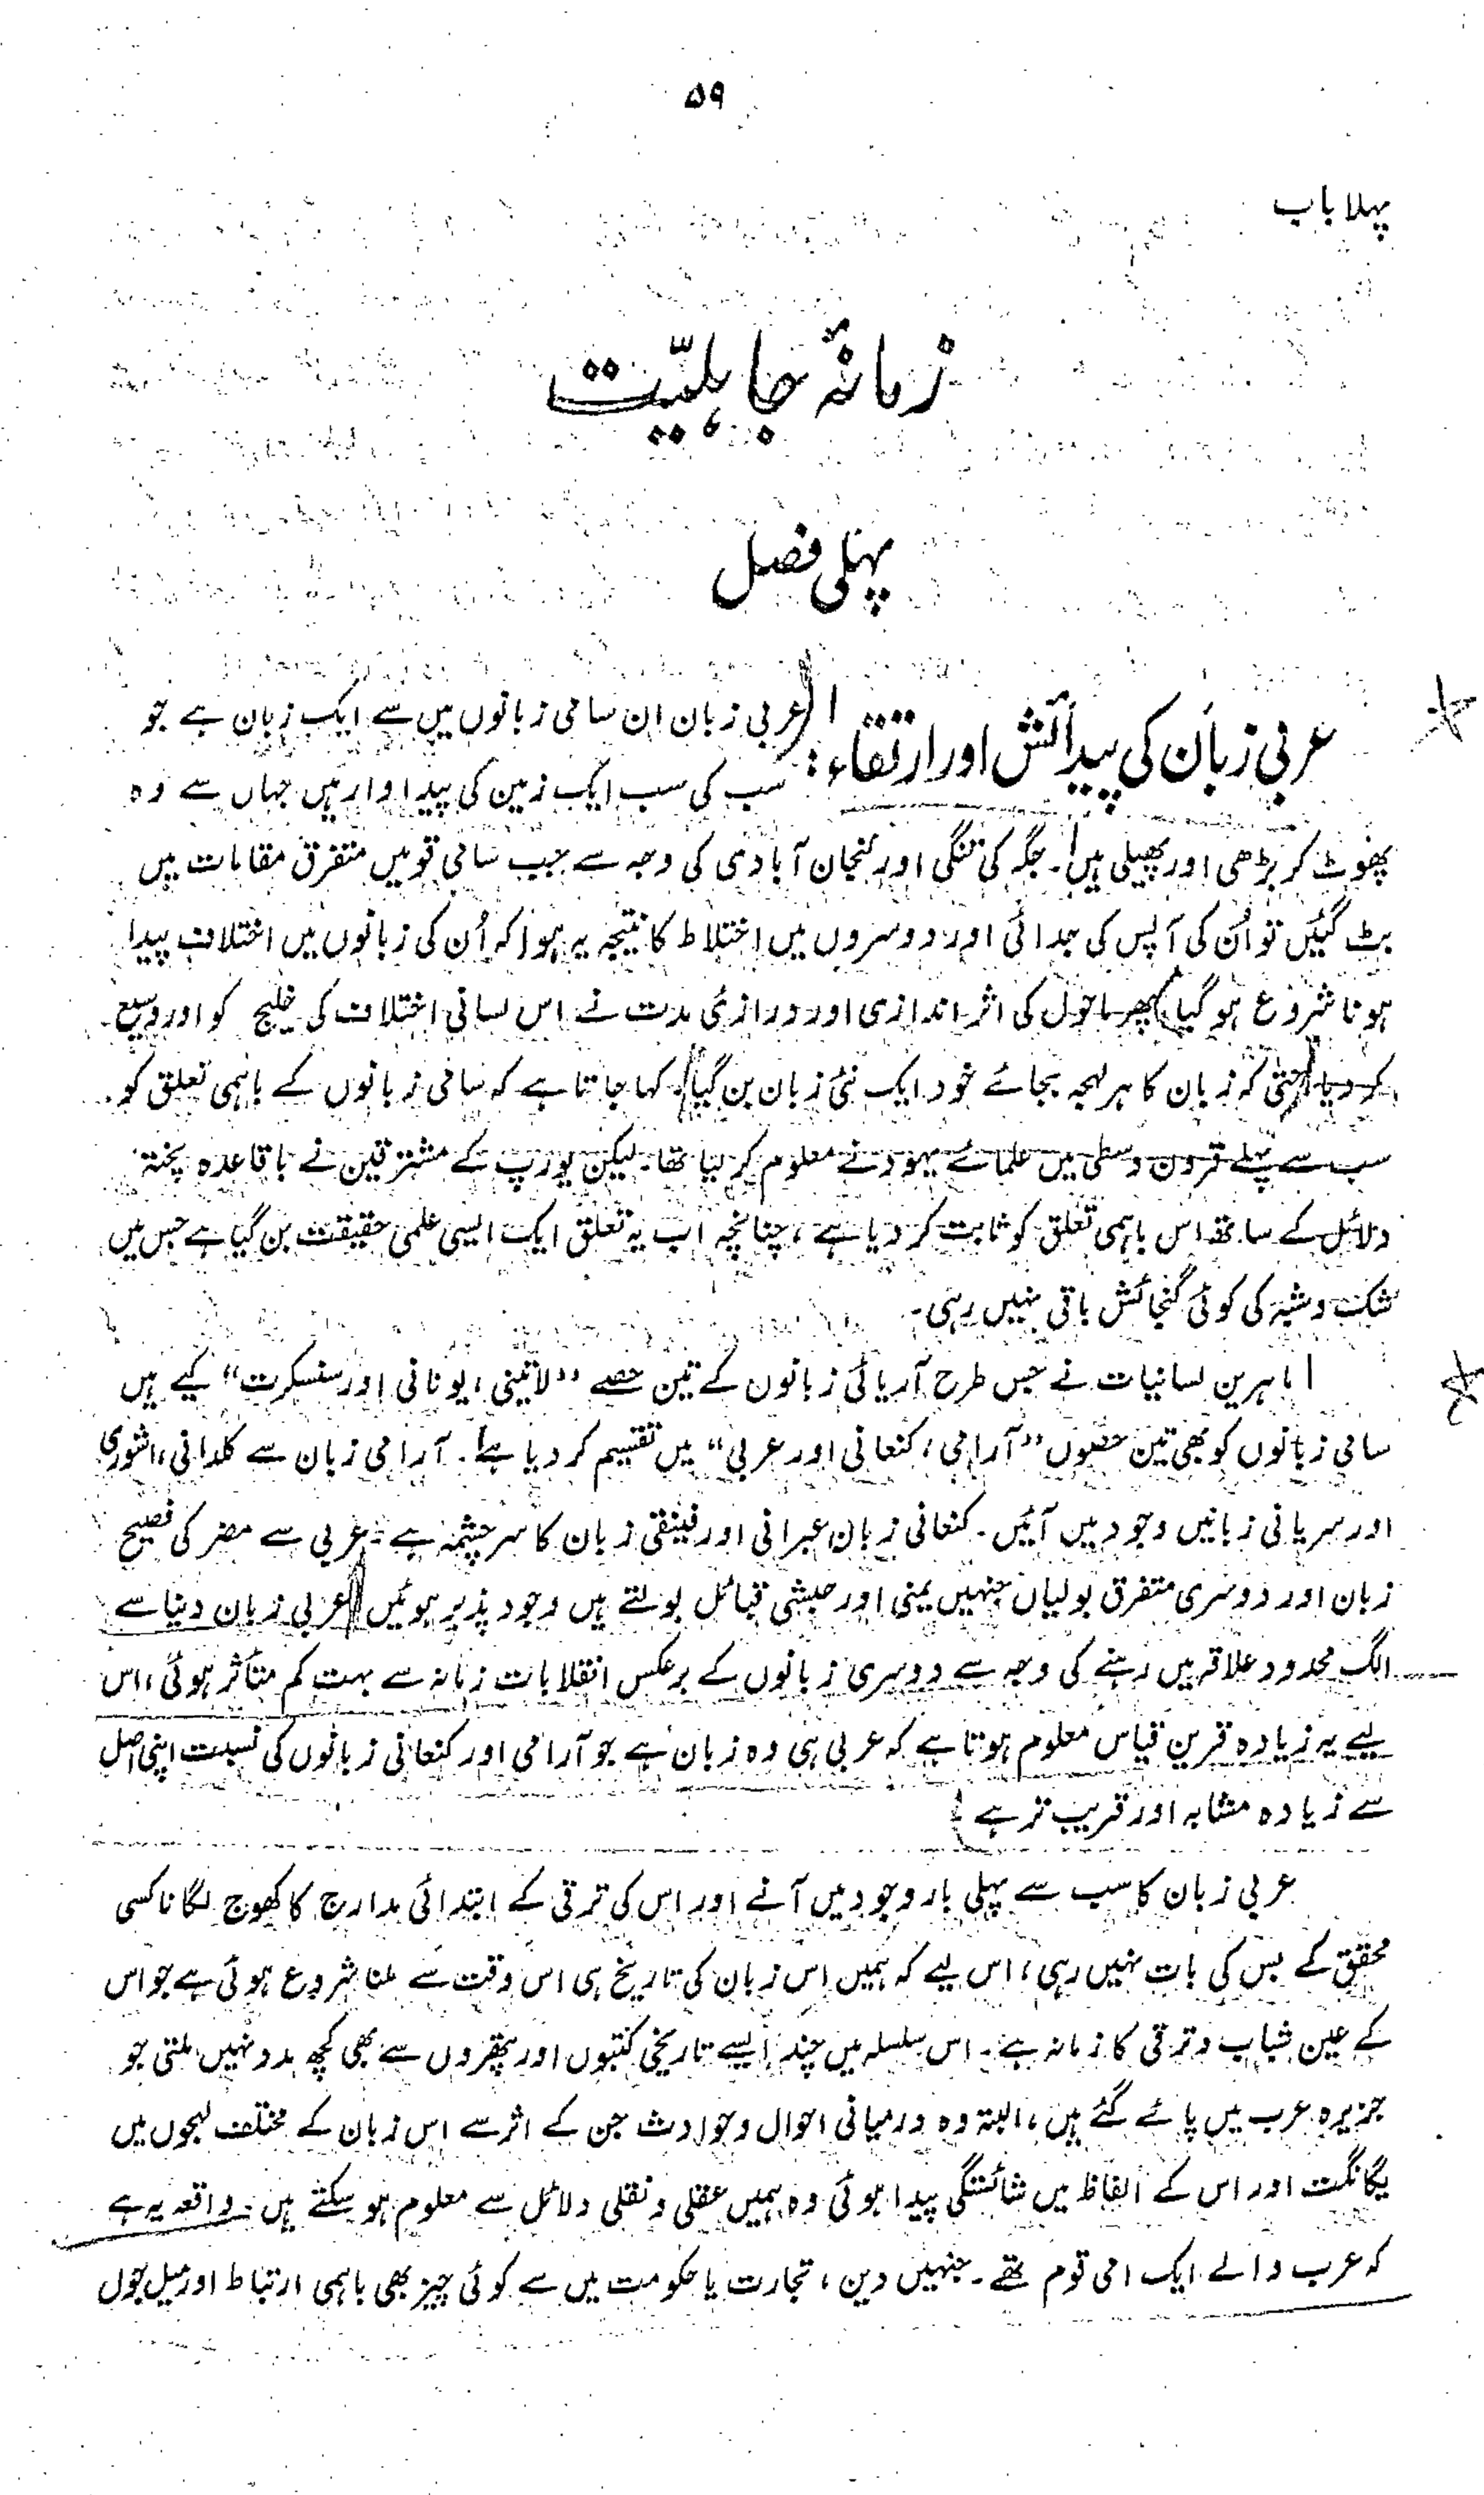 ۵۹
پہلا باب
زمانۂ جاہلیّت
پہلی فصل
عربی زبان کی پیدائش اور ارتقاء:
عربی زبان ان سامی زبانوں میں سے ایک زبان ہے جو
سب کی سب ایک زمین کی پیداوار ہیں جہاں سے وہ
پھوٹ کر بڑھی اور پھیلی ہیں۔ جگہ کی تنگی اور گنجان آبادی کی وجہ سے جب سامی قومیں متفرق مقامات میں
بٹ گئیں تو اُن کی آپس کی جدائی اور دوسروں میں اختلاط کا نتیجہ یہ ہوا کہ اُن کی زبانوں میں اختلاف پیدا
ہونا شروع ہو گیا، پھر ماحول کی اثر اندازی اور درازئ مدت نے اس لسانی اختلاف کی خلیج کو اور وسیع
کر دیا حتیٰ کہ زبان کا ہر لہجہ بجائے خود ایک نئی زبان بن گیا۔ کہا جاتا ہے کہ سامی زبانوں کے باہمی تعلق کو
سب سے پہلے قرون وسطی میں علمائے یہود نے معلوم کر لیا تھا۔ لیکن یورپ کے مشترقین نے باقاعدہ پختہ
دلائل کے ساتھ اس باہمی تعلق کو ثابت کر دیا ہے، چنانچہ اب یہ تعلق ایک ایسی علمی حقیقت بن گیا ہے جس میں
شک و شبہ کی کوئی گنجائش باقی نہیں رہی۔
ماہرین لسانیات نے جس طرح آریائی زبانوں کے تین حصے ”لاتینی، یونانی اور سنسکرت“ کیے ہیں
سامی زبانوں کو بھی تین حصوں ”آرامی، کنعانی اور عربی“ میں تقسیم کر دیا ہے۔ آرامی زبان سے کلدانی، اشوری
اور سریانی زبانیں وجود میں آئیں۔ کنعانی زبان عبرانی اور فینقی زبان کا سرچشمہ ہے۔ عربی سے مضر کی فصیح
زبان اور دوسری متفرق بولیاں جنہیں یمنی اور حبشی قبائل بولتے ہیں وجود پذیر ہوئیں عربی زبان دنیا سے
الگ محدود علاقہ میں رہنے کی وجہ سے دوسری زبانوں کے برعکس انقلابات زمانہ سے بہت کم متأثر ہوئی، اس
لیے یہ زیادہ قرین قیاس معلوم ہوتا ہے کہ عربی ہی وہ زبان ہے جو آرامی اور کنعانی زبانوں کی نسبت اپنی اصل
سے زیادہ مشابہ اور قریب تر ہے
عربی زبان کا سب سے پہلی بار وجود میں آنے اور اس کی ترقی کے ابتدائی مدارج کا کھوج لگانا کسی
محقق کے بس کی بات نہیں رہی، اس لیے کہ ہمیں اس زبان کی تاریخ ہی اس وقت سے ملنا شروع ہوئی ہے جو اس
کے عین شباب و ترقی کا زمانہ ہے۔ اس سلسلہ میں چند ایسے تاریخی کتبوں اور پتھروں سے بھی کچھ مدد نہیں ملتی جو
جزیرہ عرب میں پائے گئے ہیں، البتہ وہ درمیانی احوال و حوادث جن کے اثر سے اس زبان کے مختلف لہجوں میں
یگانگت اور اس کے الفاظ میں شائستگی پیدا ہوئی وہ ہمیں عقلی و نقلی دلائل سے معلوم ہو سکتے ہیں۔ واقعہ یہ ہے
کہ عرب والے ایک امی قوم تھے۔ جنہیں دین، تجارت یا حکومت میں سے کوئی چیز بھی باہمی ارتباط اور میل جول